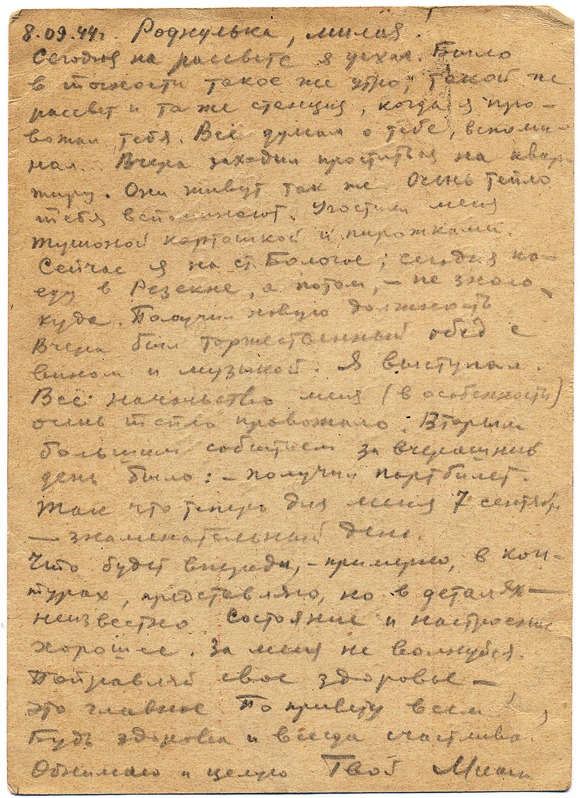 8.09.44г. Роднулька, милая!
Сегодня на рассвете я уехал. Было
в точности такое же утро, такой же
рассвет и та же станция, когда я про-
вожал тебя. Всё думал о тебе, вспоми-
нал. Вчера заходил проститься на квар-
тиру. Они живут так же. Очень тепло
тебя вспоминают. Угостили меня
тушоной картошкой и пирожками.
Сейчас я на ст. Бологое; сегодня по-
еду в Резекне, а потом, – не знаю
куда. Получил новую должность
Вчера был торжественный обед с
вином и музыкой. Я выступал.
Всё начальство меня (в особенности)
очень тепло провожало. Вторым
большим событием за вчерашний
день было: – получил партбилет.
Так что теперь для меня 7 сентября
— знаменательный день.
Что будет впереди, – примерно, в кон-
турах, представляю, но в деталях –
неизвестно Состояние и настроение
хорошее. За меня не волнуйся.
Поправляй свое здоровье –
это главное По привету всем!
Будь здорова и всегда счастлива.
Обнимаю и целую Твой